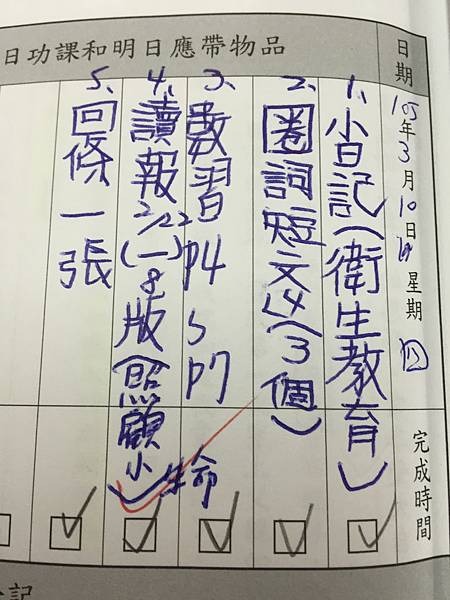 日功課和明日應帶物品
日期
105年3月10日星期四
1、小日記(衛生教育)
2、圈詞短文L4(3個)
3、數習P4 5 P7
4、讀報2/22(一)8版(照顧小生命)
5、回條一張
完成時間